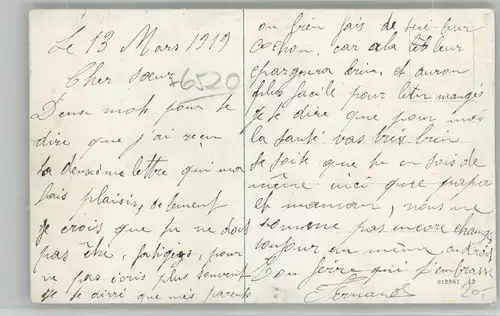 Le 13 Mars 1919
Cher sœur
76520
Deuse mots pour te
dire que j'ai reçu
ta deuseime lettre qui ma
fais plaisir,
Je crois que tu ne dois
pas être, fatiguee, pour
ne pas écris plus souvent
Je te dirré que mes parents
on bien fais de
cochon. car a la leur
epargnera bien, et auron
plus facile pour leur manger
Je te dire que pour moi
la santé vas très bien
Je soite que tu en sois de
même ici que papa
et maman, nous ne
somme pas encore changé
toujour au même androit
Ton frère qui t'embrasse
Fernand
012561 19
20,-